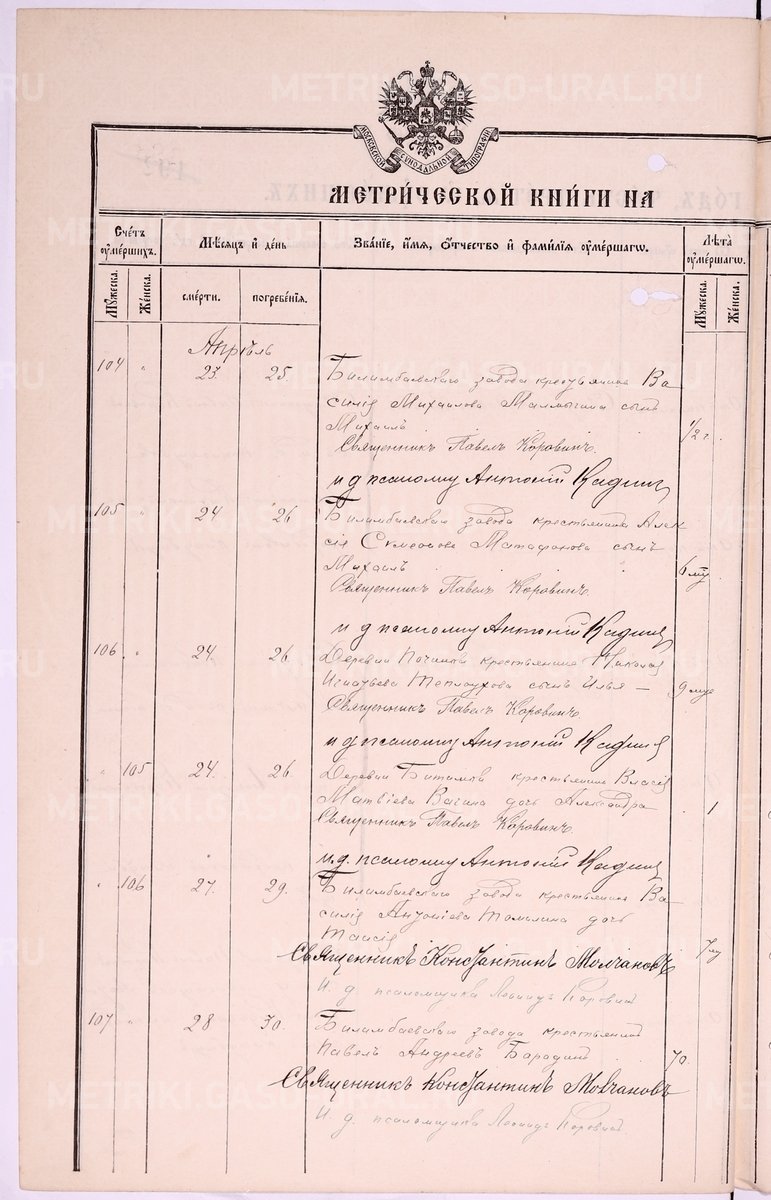 МОСКОВСКОЙ СУНОДАЛЬНОЙ ТИПОГРАФІИ
МЕТРИ́ЧЕСКОЙ КНИ́ГИ НА
Сче́тъ оуме́ршихъ.
Мѣ́сяцъ и҆ де́нь
Зва́нїе, и҆́мя, Ѻ҆́тчество и҆ фами́лїя оуме́ршагѡ.
Лѣ́та оуме́ршагѡ.
Мꙋ́жеска. Же́нска.
сме́рти. погребе́нїя.
Мꙋ́жеска. Же́нска.
Апрѣль
104 " 23. 25. Билимбаевскаго завода крестьянина Ва
силія Михаилова Малмыгина сынъ
Михаилъ 1/2 г.
Священникъ Павелъ Коровинъ.
и д псаломщ Антоній
105 " 24 26 Билимбаевскаго завода крестьянина Алек
сія Матафонова сынъ
Михаилъ 6 мц
Священникъ Павелъ Коровинъ.
и д псаломщ Антоній
106 " 24. 26. Деревни Починка крестьянина Николая
Игнатьева Теплоухова сынъ Илья — 9 мце
Священникъ Павелъ Коровинъ
и д псаломщ Антоній
" 105 24. 26. Деревни Битимки крестьянина Власія
Матвіева Вагина дочь Александра 1
Священникъ Павелъ Коровинъ
и. д. псаломщ Антоній
" 106 27. 29. Билимбаевскаго завода крестьянина Ва
силія Антоніева Томилина дочь
Таисія 7 мц
Священникъ Константинъ Молчановъ
И. д. псаломщика Леонидъ Коровинъ
107 " 28 30. Билимбаевскаго завода крестьянинъ
Павелъ Андреевъ Бородинъ 70.
Священникъ Константинъ Молчановъ
И. д. псаломщика Леонидъ Коровинъ.
METRIKI.GASO-URAL.RU